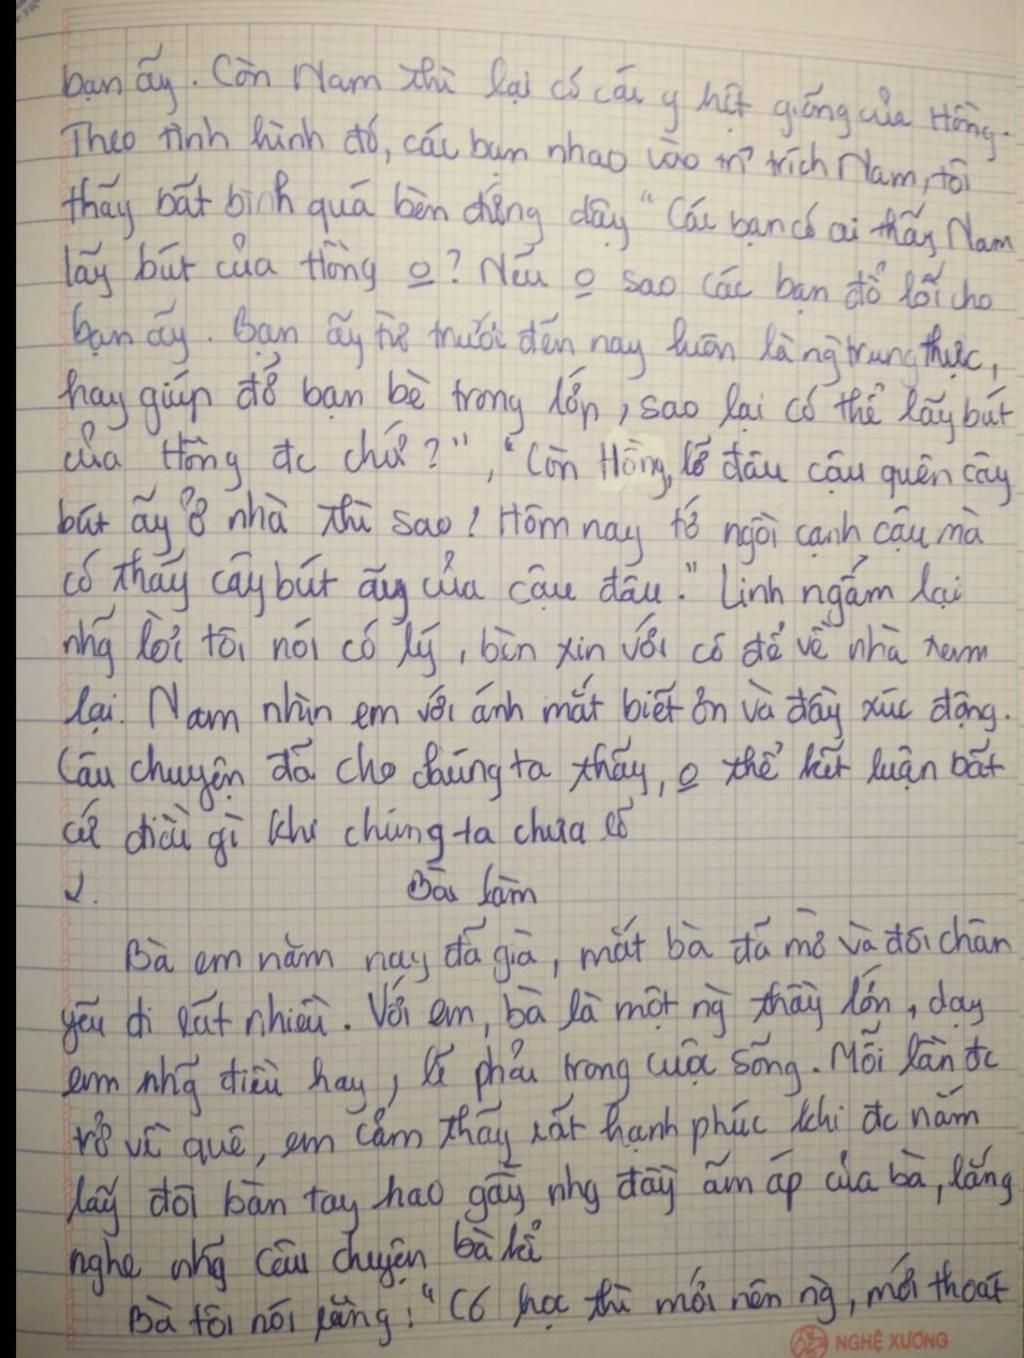 bạn ấy. Còn Nam thì lại có cái y hệt giống của Hồng.
Theo tình hình đó, các bạn nhao vào trỉ trích Nam, tôi
thấy bất bình quá bèn đứng dậy "Các bạn có ai thấy Nam
lấy bút của Hồng o? Nếu o sao các bạn đổ lỗi cho
bạn ấy. Bạn ấy từ trước đến nay luôn là ng trung thực,
hay giúp đỡ bạn bè trong lớp, sao lại có thể lấy bút
của Hồng đc chứ?", "Còn Hồng, lỡ đâu cậu quên cây
bút ấy ở nhà thì sao! Hôm nay tớ ngồi cạnh cậu mà
có thấy cây bút ấy của cậu đâu." Linh ngẫm lại
nhg lời tôi nói có lý, bèn xin với cô để về nhà xem
lại. Nam nhìn em với ánh mắt biết ơn và đầy xúc động.
Câu chuyện đã cho chúng ta thấy, o thể kết luận bất
cứ điều gì khi chúng ta chưa rõ
2. Bài làm
Bà em năm nay đã già, mắt bà đã mờ và đôi chân
yếu đi rất nhiều. Với em, bà là một ng thầy lớn, dạy
em nhg điều hay, lẽ phải trong cuộc sống. Mỗi lần đc
về quê, em cảm thấy rất hạnh phúc khi đc nắm
lấy đôi bàn tay hao gầy nhg đầy ấm áp của bà, lắng
nghe nhg câu chuyện bà kể
Bà tôi nói rằng: "Có học thì mới nên ng, mới thoát
NGHỆ XƯƠNG